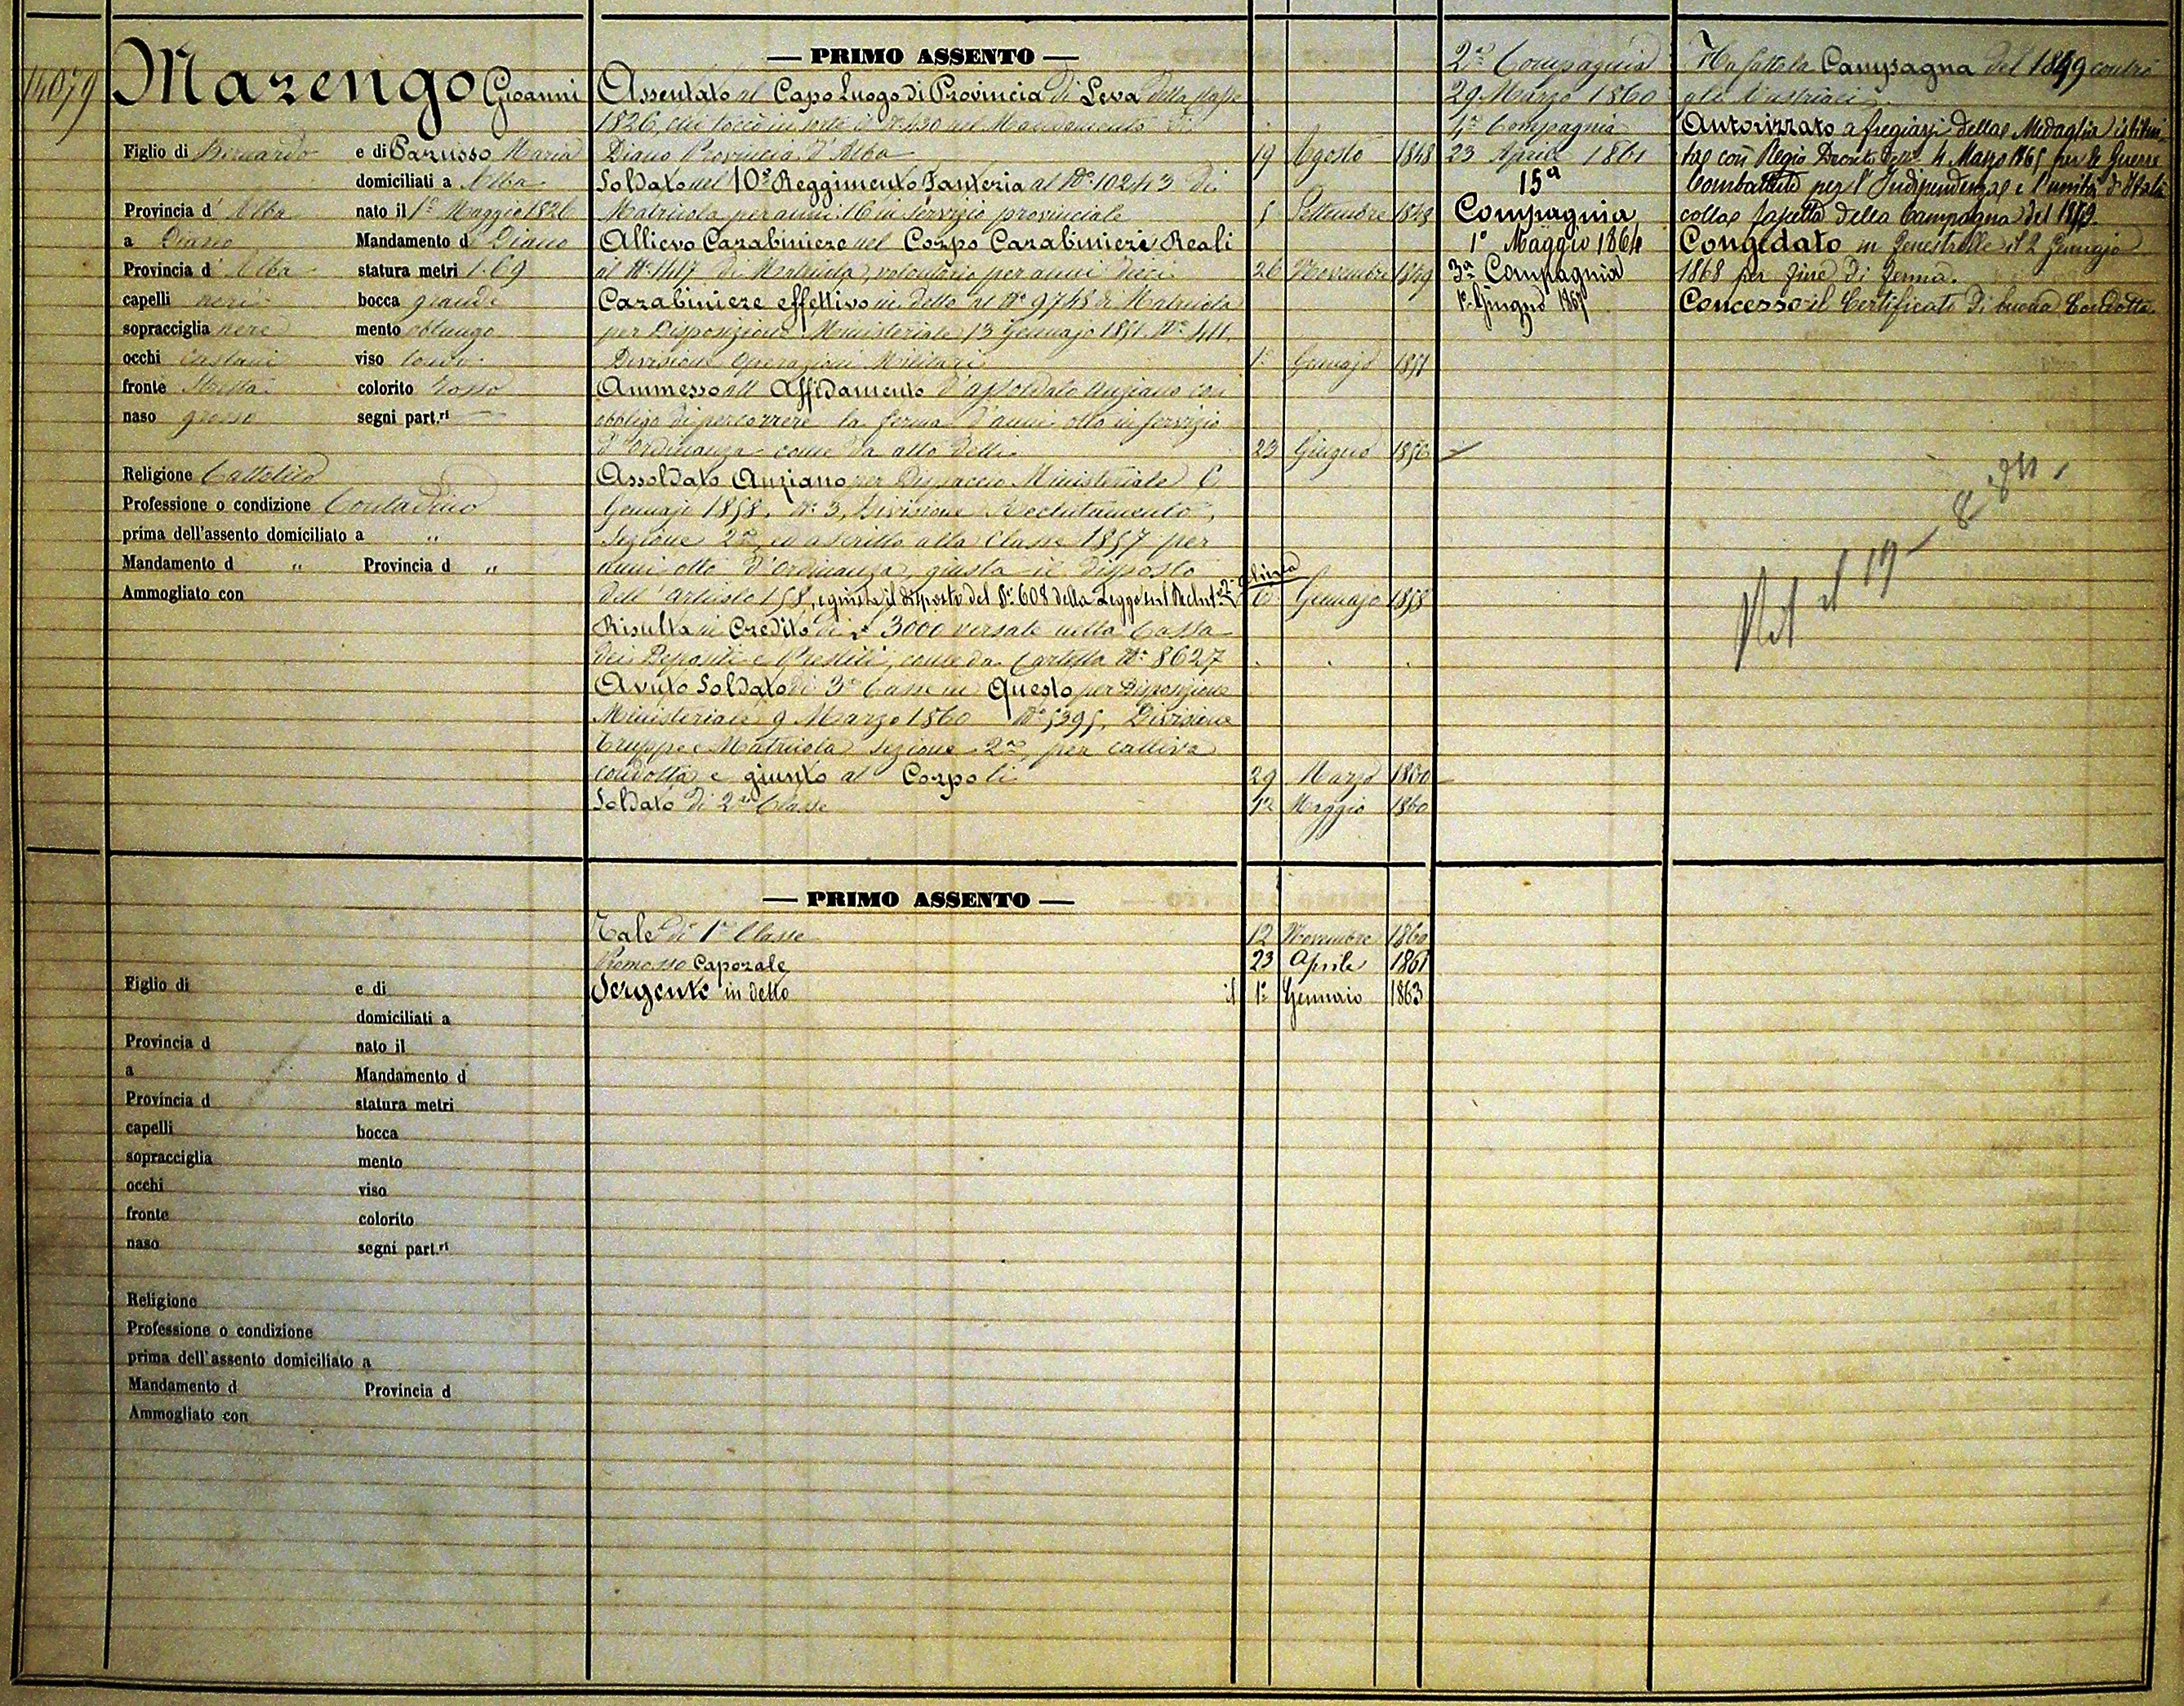 14079
Marengo Gioanni
Figlio di Bernardo e di Parusso Maria
domiciliati a Alba
Provincia d' Alba nato il 1º Maggio 1826
a Diano Mandamento di Diano
Provincia d' Alba statura metri 1.69
capelli neri bocca grande
sopracciglia nere mento oblungo
occhi castani viso tondo
fronte stretta colorito rosso
naso grosso segni part.ri
Religione Cattolica
Professione o condizione Contadino
prima dell'assento domiciliato a "
Mandamento d " Provincia d "
Ammogliato con
— PRIMO ASSENTO —
Assentato al Capo Luogo di Provincia di Leva della classe
1826, cui toccò in sorte il Nº 430 nel Mandamento di
Diano Provincia d'Alba 19 Agosto 1848
Soldato nel 10º Reggimento Fanteria al Nº 10243 di
Matricola per anni 16 in servizio provinciale Settembre
Allievo Carabiniere nel Corpo Carabinieri Reali
al Nº 1417 di Matricola, volontario per anni dieci 26 Novembre 1849
Carabiniere effettivo in detto al Nº 9748 di Matricola
per Disposizione Ministeriale 13 Gennajo 1851 Nº 411
Divisione Operazioni Militari 1º Gennajo 1851
Ammesso all'Affidamento d'assoldato anziano con
obbligo di percorrere la ferma d'anni otto in servizio
d'ordinanza come da atto delli 23 Giugno 1856
Assoldato Anziano per Dispaccio Ministeriale 6
Gennajo 1858, Nº 3, Divisione Reclutamento,
Sezione 2ª ed ascritto alla Classe 1857 per
anni otto d'ordinanza, giusta il disposto
dell'articolo 158, e giusta il disposto del §º 608 della Legge sul Reclut.º 6 Gennajo 1858
Risulta in Credito di L. 3000 versate nella Cassa
dei Depositi e Prestiti, come da Cartella Nº 8627
Avuto Soldato di 3ª Classe in Questo per Disposizione
Ministeriale 9 Marzo 1860 Nº 5395, Divisione
Truppe e Matricola Sezione 2ª, per cattiva
condotta e giunto al Corpo li 29 Marzo 1860
Soldato di 2ª Classe 1º Maggio 1860
2ª Compagnia
29 Marzo 1860
4ª Compagnia
23 Aprile 1861
15ª
Compagnia
1º Maggio 1864
3ª Compagnia
1º Giugno 1867
Ha fatto la Campagna del 1849 contro
gli Austriaci.
Autorizzato a fregiarsi della Medaglia istitui-
ta con Regio Decreto 4 Marzo 1865 per le Guerre
Combattute per l'Indipendenza e l'unità d'Italia
colla fascetta della Campagna del
Congedato in Fenestrelle il 2 Gennajo
1868 per fine di ferma.
Concesso il Certificato di buona Condotta
— PRIMO ASSENTO —
Tale di 1ª Classe 12 Novembre 1860
Promosso Caporale 23 Aprile 1861
Sergente in detto il 1º Gennaio 1863
Figlio di e di
domiciliati a
Provincia d nato il
a Mandamento d
Provincia d statura metri
capelli bocca
sopracciglia mento
occhi viso
fronte colorito
naso segni part.ri
Religione
Professione o condizione
prima dell'assento domiciliato a
Mandamento d Provincia d
Ammogliato con